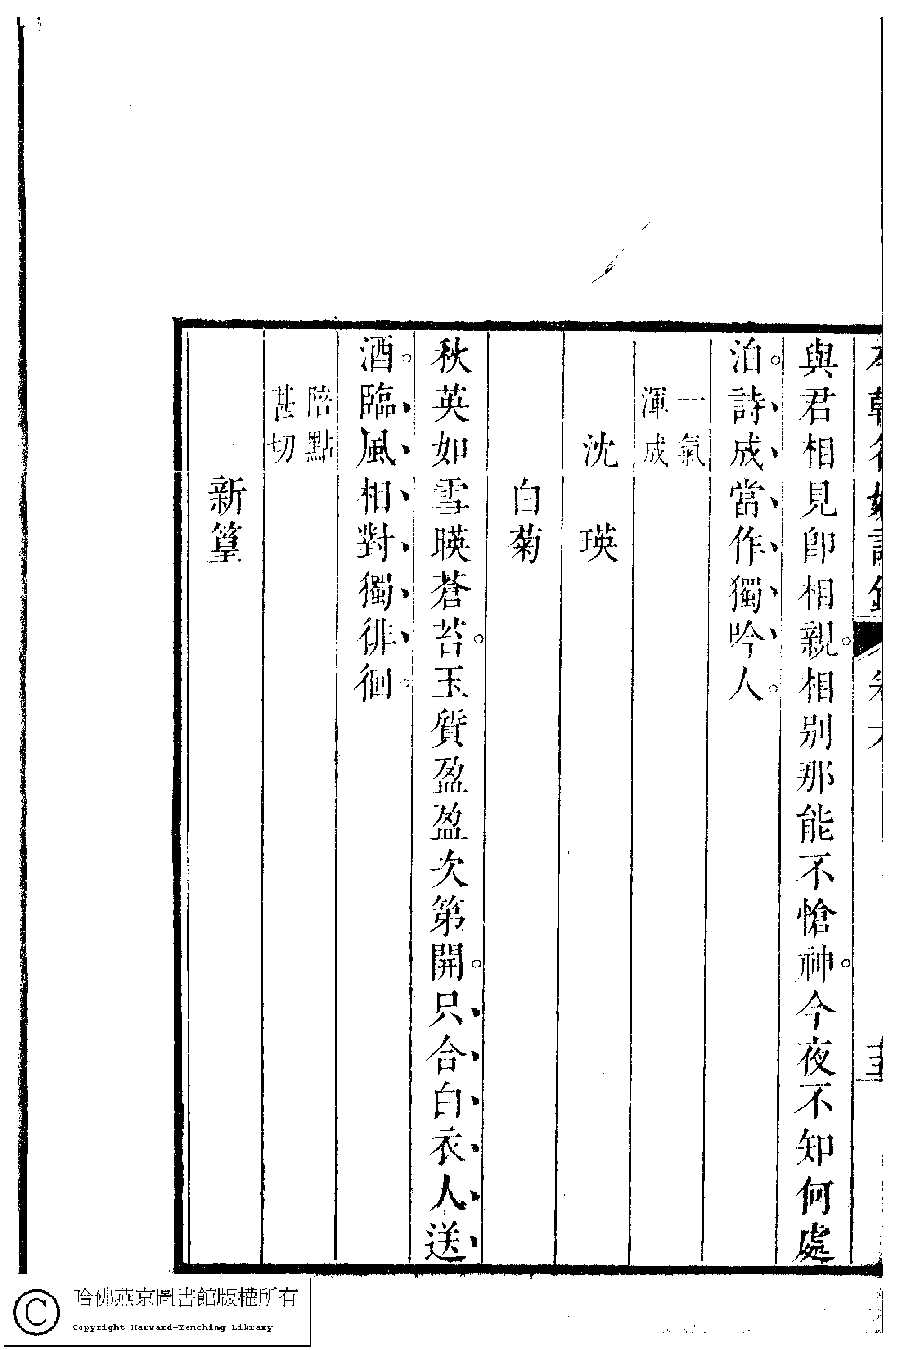 與君相見即相親。相別那能不愴神。今夜不知何處
泊。詩成當作獨吟人。
一氣
渾成
沈 瑛
白菊
秋英如雪暎蒼苔。玉質盈盈次第開。只合白衣人送
酒。臨風相對獨徘徊。
陪點
甚切
新篁
哈佛燕京圖書館版權所有
Copyright Harvard-Yenching Library